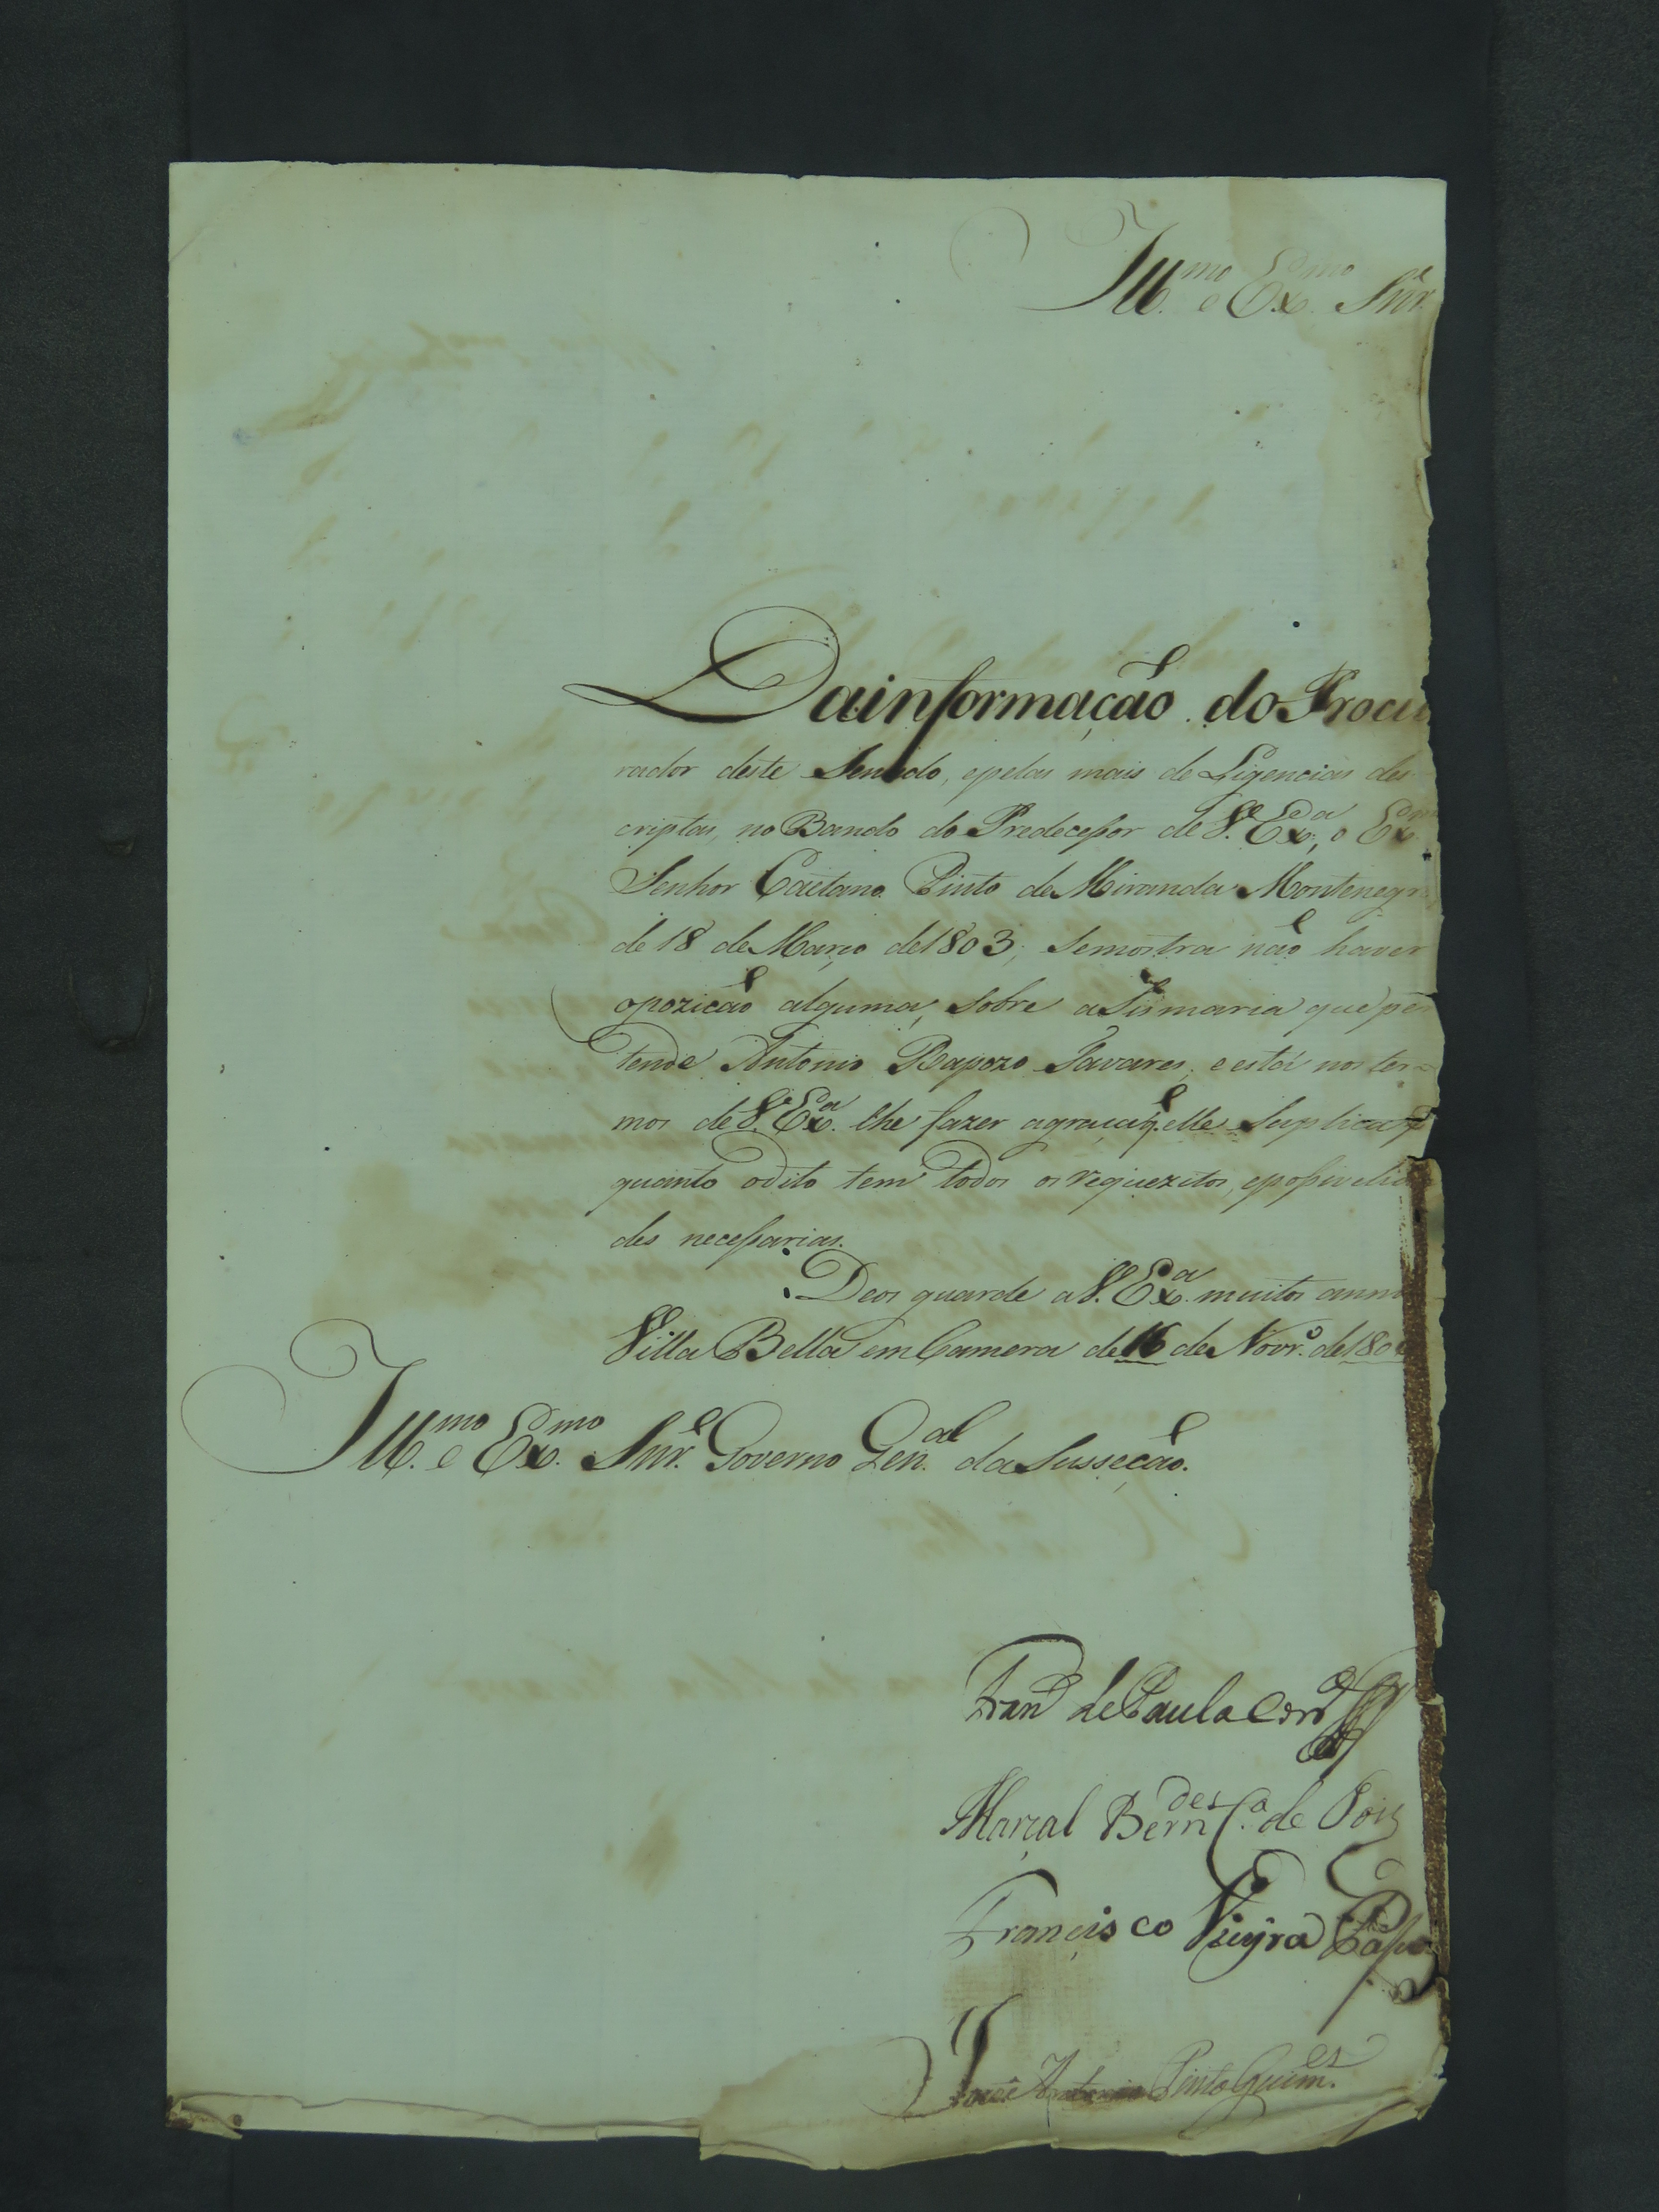 Ill.mo e Ex.mo Snr.
Dainformação do Procu
rador deste Senado, epelas mais de Ligencias des
criptas, no Bando do Predeceſsor de V. Ex.a, o Ex.mo
Senhor Caetano Pinto de Miranda Montenegro
de 18 de Março de 1803; Semostra não haver
opozicão alguma, Sobre a Sismaria que per
tende Antonio Rapozo Tavares, e está nos ter-
mos de V. Ex.a lhe fazer agraça q. elle Suplica p
quanto odito tem todos os requezitos, epoſsivelida
des neceſsarias.
Deos guarde a V. Ex.a muitos annos
Villa Bella em Camera de 16 de Novr.o de 180
Ill.mo e Ex.mo Snr. Governo Gen.al da Susseção.
Fran.co de Paula
Marçal Bern.des de
Francisco Vieyra
José Antonio Pinto Guim.es